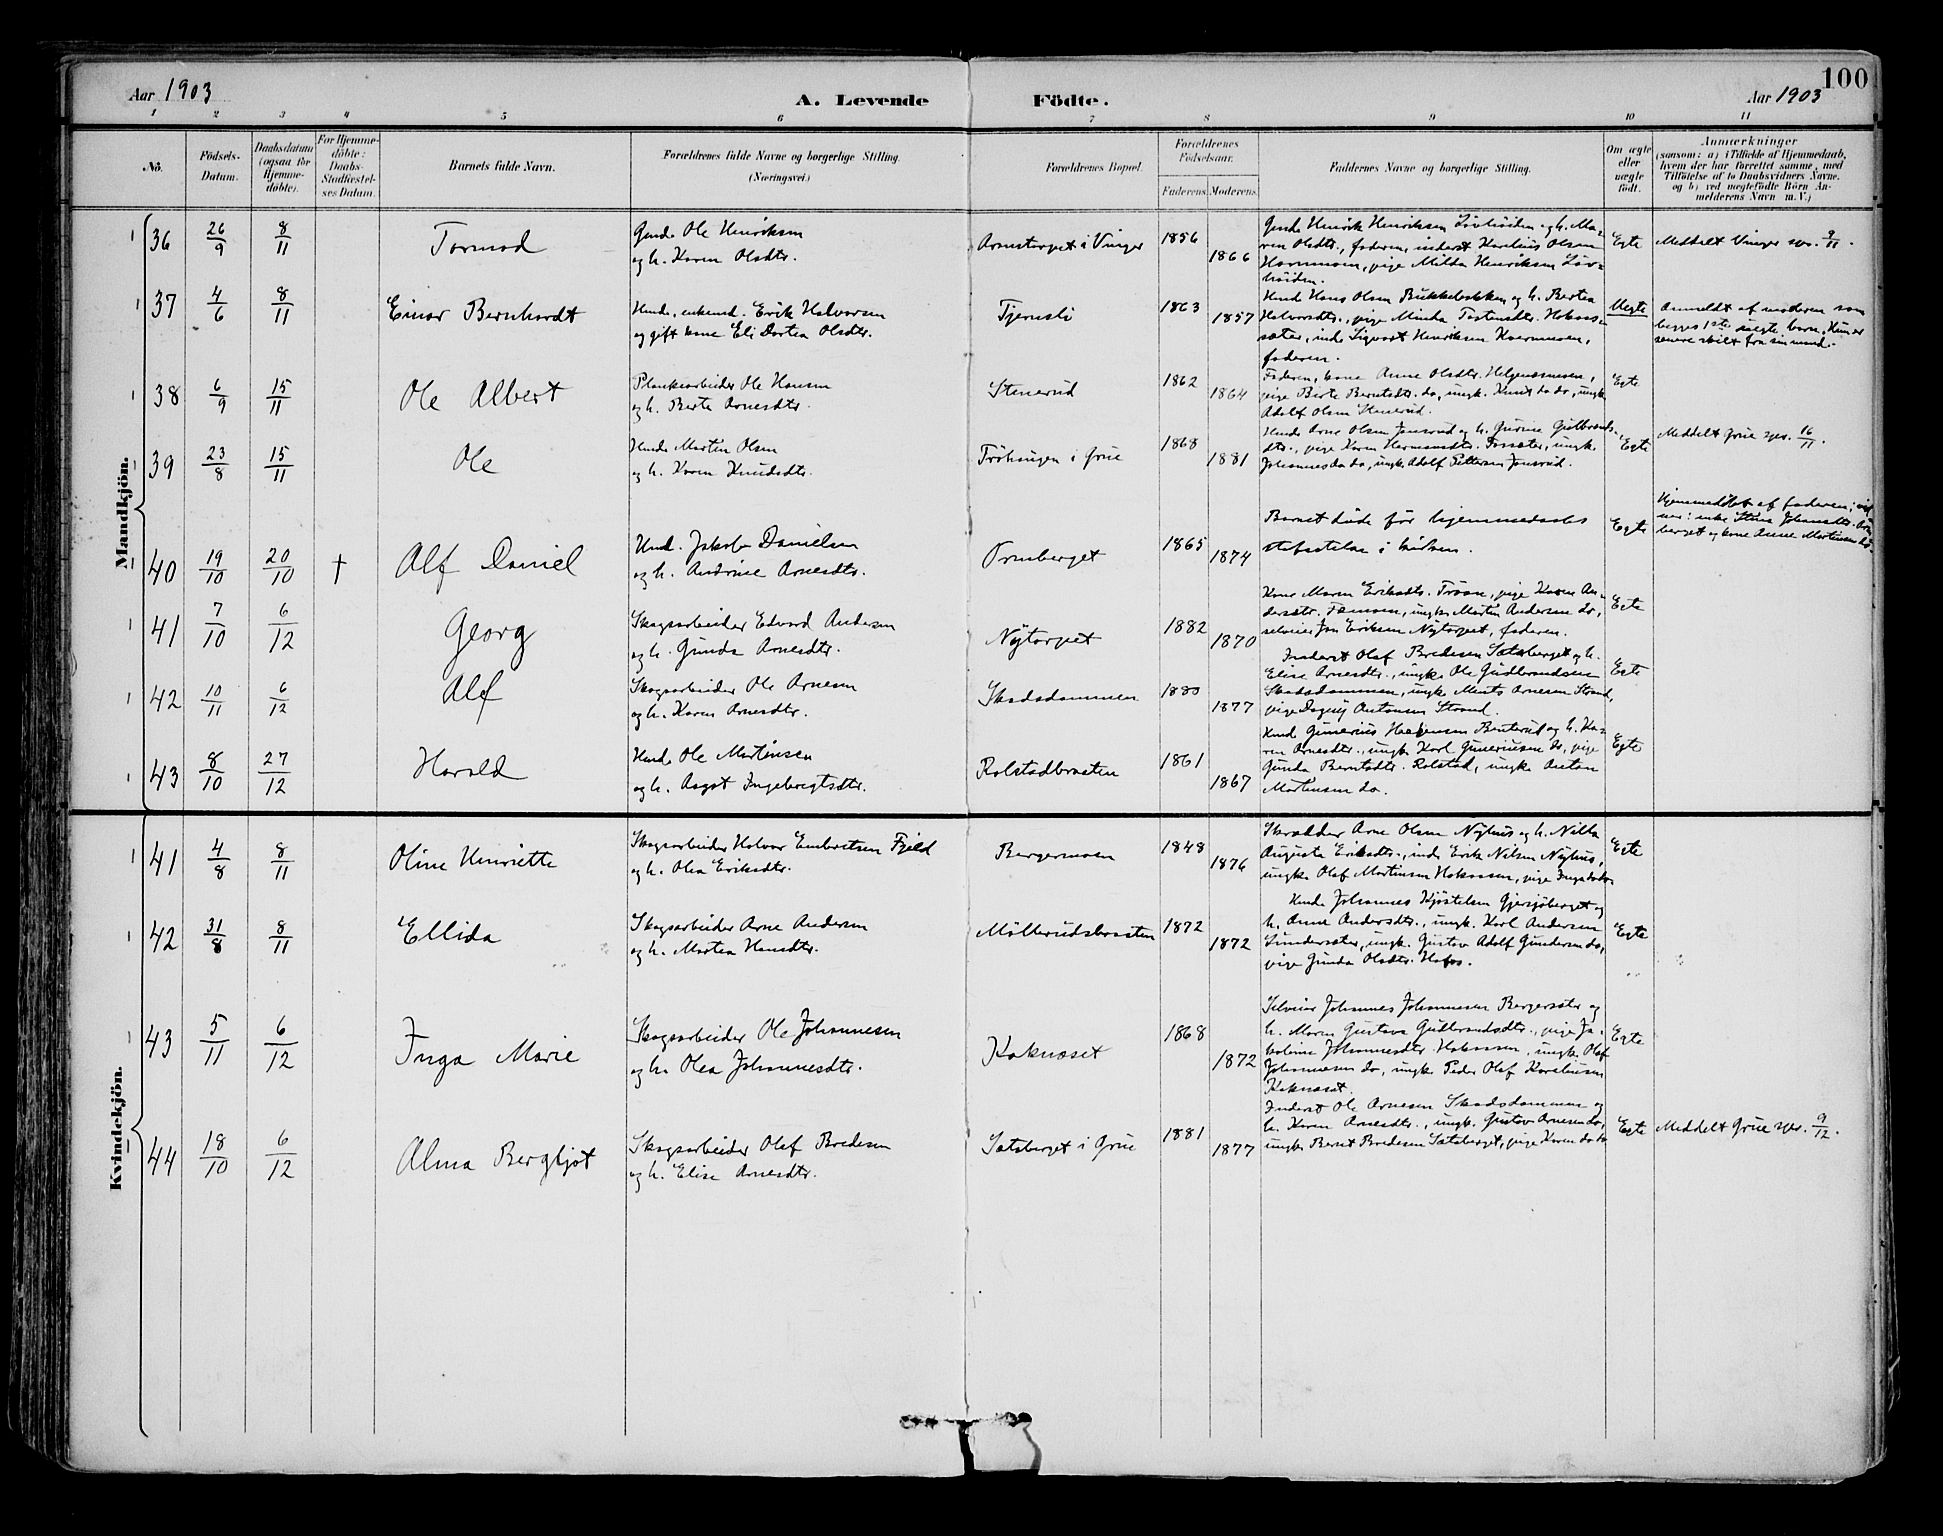 100
Aar 1903
A. Levende Födte.
Aar 1903
1 2 3 4 5 6 7 8 9 10 11
No.
Födsels-
Datum.
Daabsdatum
(ogsaa for
Hjemme-
döbte).
For Hjemme-
döbte:
Daabs-
Stadfæstel-
ses Datum.
Barnets fulde Navn.
Forældrenes fulde Navne og borgerlige Stilling.
(Næringsvei.)
Forældrenes Bopæl.
Forældrenes
Födselsaar.
Faderens. Moderens.
Faddernes Navne og borgerlige Stilling.
Om ægte
eller
uægte
født.
Anmærkninger
(saasom: a) i Tilfælde af Hjemmedaab,
hvem der har forrettet samme, med
Tilföielse af to Daabsvidners Navne,
og b) ved uægtefödte Börn An-
melderens Navn m. V.)
Mandkjön.
36 26/9 8/11 Tormod
Gmd. Ole Henriksen
og h. Karen Olsdtr.
Arnetorpet i Vinger 1856 1866
Gmd. Henrik Henriksen Lövhöiden og h. Ma-
ren Olsdtr., faderen, inderst Karelius Olsen
pige Milda Henriksen Löv-
höiden.
Egte
Meddelt Vinger spr. 9/11.
37 4/6 8/11 Einar Bernhardt
Hmd., enkemd. Erik Halvorsen
og gift kone Eli Dortea Olsdtr.
Tjernsli 1863 1857
Hmd Hans Olsen Bukkebakken og h. Bertea
Halvorsdtr., pige Minda
ind. Sigvart Henriksen
faderen.
Uegte
Anmeldt af moderen som
begges 1ste uegte barn. Hun er
senere skilt fra sin mand.
38 6/9 15/11 Ole Albert
Plankearbeider Ole Hansen
og h. Berte Arnesdtr.
Stenerud 1862 1864
Faderen, kone Anne Olsdtr. Helgesmoen,
pige Birte Berntsdtr. do, ungk. Knut do do, ungk.
Adolf Olsen Stenerud.
Egte
39 23/8 15/11 Ole
Hmd. Martin Olsen
og h. Karen Knudsdtr.
i Grue 1868 1881
Hmd. Arne Olsen Jonsrud og h. Gurine Gulbrands-
dtr., pige Karen Hermansdtr. Fossæter, ungk.
Johannes do do, ungk. Adolf Pettersen Jonsrud.
Egte
Meddelt Grue spr. 16/11.
40 19/10 20/10 † Alf Daniel
Hmd. Jakob Danielsen
og h. Andrine Arnesdtr.
Ormberget 1865 1874
Barnet döde för hjemmedaabs
stadfestelse i kirken.
Egte
Hjemmedöbt af faderen; vid-
ner: enke Stina Johannesdtr. Orm-
berget og kone Anne Martinsen do.
41 7/10 6/12 Georg
Skogsarbeider Edvard Andersen
og h. Gunda Arnesdtr.
Nytorpet 1882 1870
Kone Maren Eriksdtr. Tröen, pige Karen An-
dersdtr. ungk. Martin Andersen do,
selveier Jon Eriksen Nytorpet, faderen.
Egte
42 10/11 6/12 Alf
Skogsarbeider Ole Arnesen
og h. Karen Arnesdtr.
Skadsdammen 1880 1877
Inderst Olaf Bredesen Sætaberget og h.
Elise Arnesdtr., ungk. Ole Gudbrandsen
Skadsdammen, ungk. Ments Arnesen Strand,
pige Dagny Antonsen Strand.
Egte
43 8/10 27/12 Harald
Hmd. Ole Martinsen
og h. Aagot Ingebregtsdtr.
Rolstadbraaten 1861 1867
Hmd Gunerius Benterud og h. Ka-
ren Arnesdtr., ungk. Karl Guneriusen do, pige
Gunda Berntsdtr. Rolstad, ungk. Anton
Martinsen do.
Egte
Kvindekjön.
41 4/8 8/11 Oline Henriette
Skogsarbeider Halvor Embretsen Fjeld
og h. Olea Eriksdtr.
Bergermoen 1848 1876
Skrædder Arne Olsen Nyhus og h. Nilla
Augusta Eriksdtr., ind. Erik Nilsen Nyhus,
ungk. Olaf Martinsen Hokaasen, pige Inga do do.
Egte
42 31/8 8/11 Ellida
Skogsarbeider Arne Andersen
og h. Martea Hansdtr.
Möllerudsbraaten 1872 1872
Hmd Johannes Kjöstelsen Gjersjöberget og
h. Anne Andersdtr., ungk. Karl Andersen
Gundersæter, ungk. Gustav Adolf Gundersen do,
pige Gunda Olsdtr. Hofos.
Egte
43 5/11 6/12 Inga Marie
Skogsarbeider Ole Johannesen
og h. Olea Johannesdtr.
Kaknæset 1868 1872
Selveier Johannes Johannesen Bergersæter og
h. Maren Gustava Gudbrandsdtr., pige Ja-
kobine Johannesdtr. Hokaasen, ungk. Olaf
Johannesen do, ungk. Peder Olaf Kareliusen
Kaknæset.
Egte
44 18/10 6/12 Alma Bergljot
Skogsarbeider Olaf Bredesen
og h. Elise Arnesdtr.
Sætaberget i Grue 1881 1877
Inderst Ole Arnesen Skadsdammen og
h. Karen Arnesdtr., ungk. Gustav Arnesen do,
ungk. Bernt Bredesen Sætaberget, pige Karen do do
Egte
Meddelt Grue spr. 9/12.